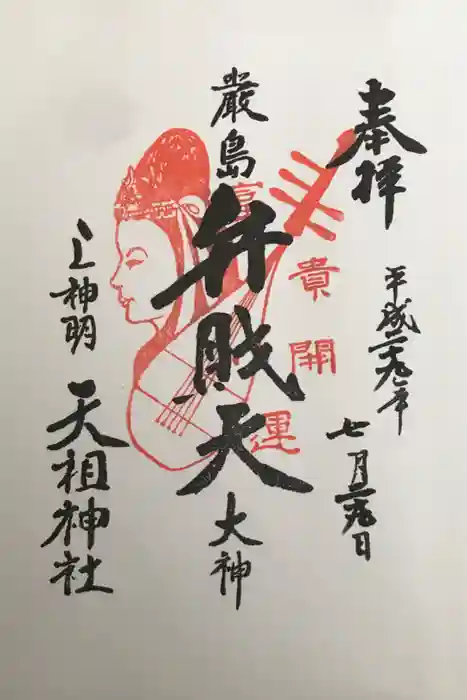 奉拝
平成二十九年
七月二十九日
富貴開運
厳島
弁財天
大神
上神明
天祖神社